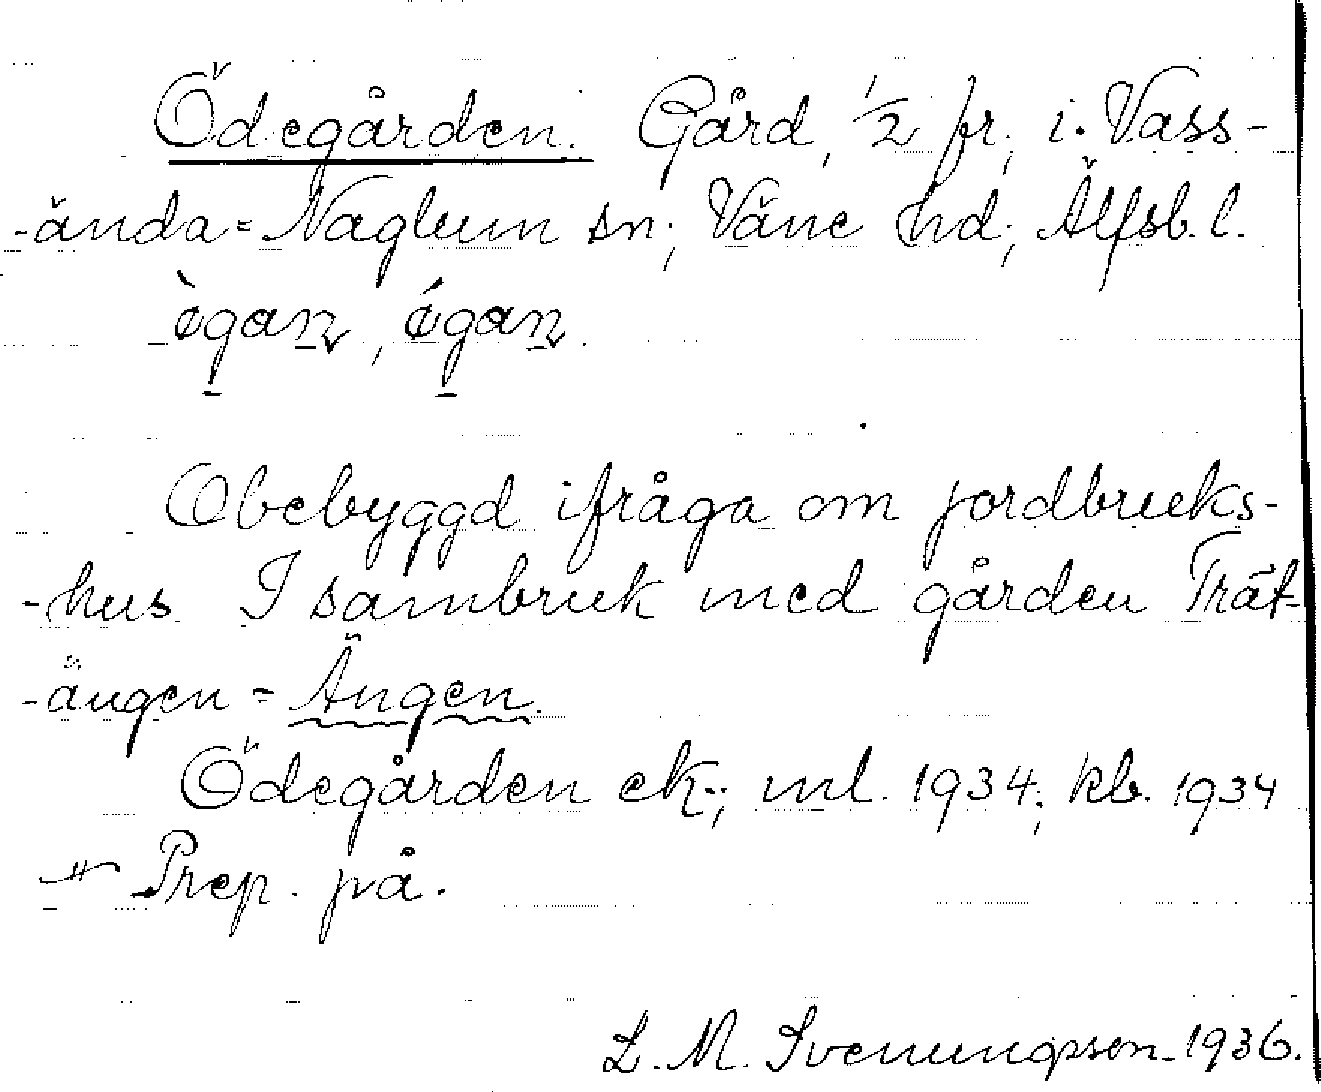 Ödegården. Gård, 1/2 fr, i. Vass-
-ända= Naglum sn; Väne hd; Älfsb. l.
Obebyggd ifråga om jordbruks-
-hus I sambruk med gården Trät-
-ängen = Ängen.
Ödegården ek.; ml. 1934; kb. 1934
Prep. på.
L. M. Svenungsson. 1936.